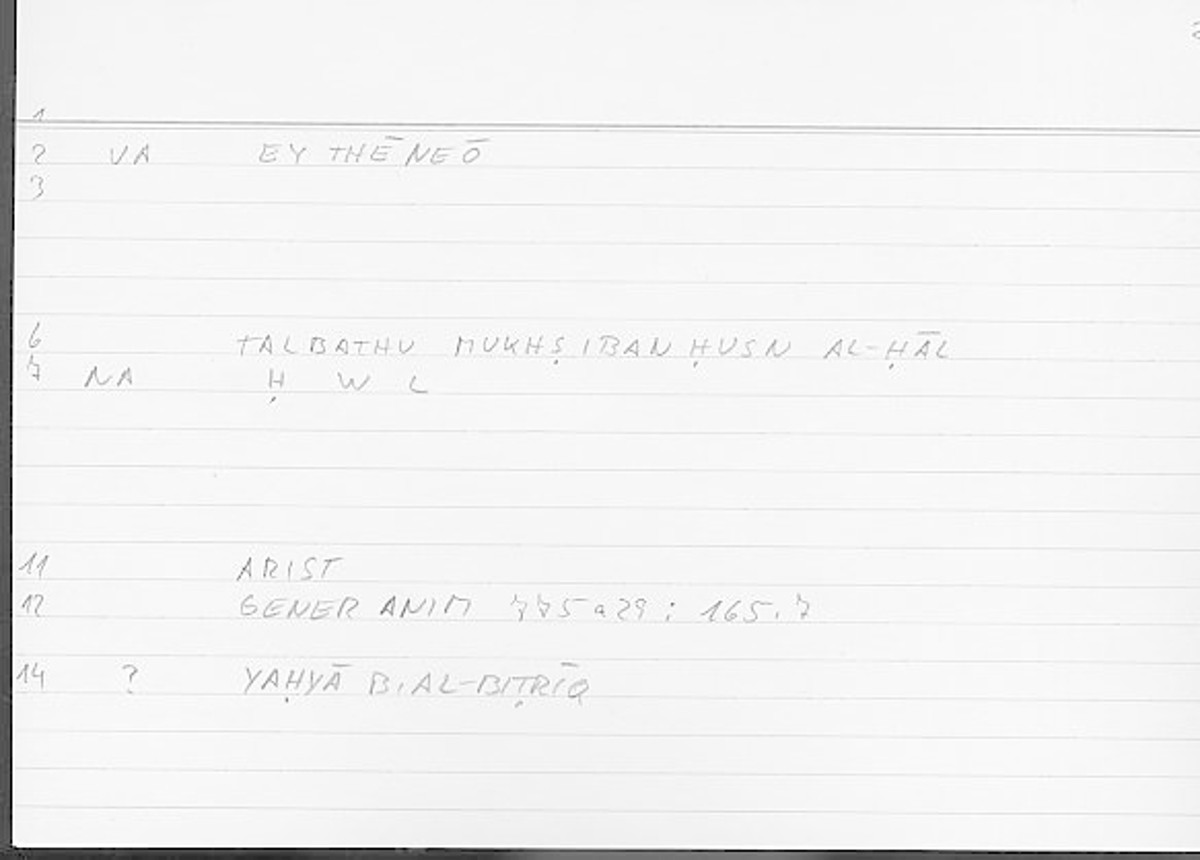 1
2 VA EY THĒNEŌ
3
6 TALBATHU MUKHṢIBAN ḤUSN AL-ḤĀL
7 NA Ḥ W L
11 ARIST
12 GENER ANIM 775a29 : 165.7
14 ? YAḤYĀ B. AL-BIṬRĪQ